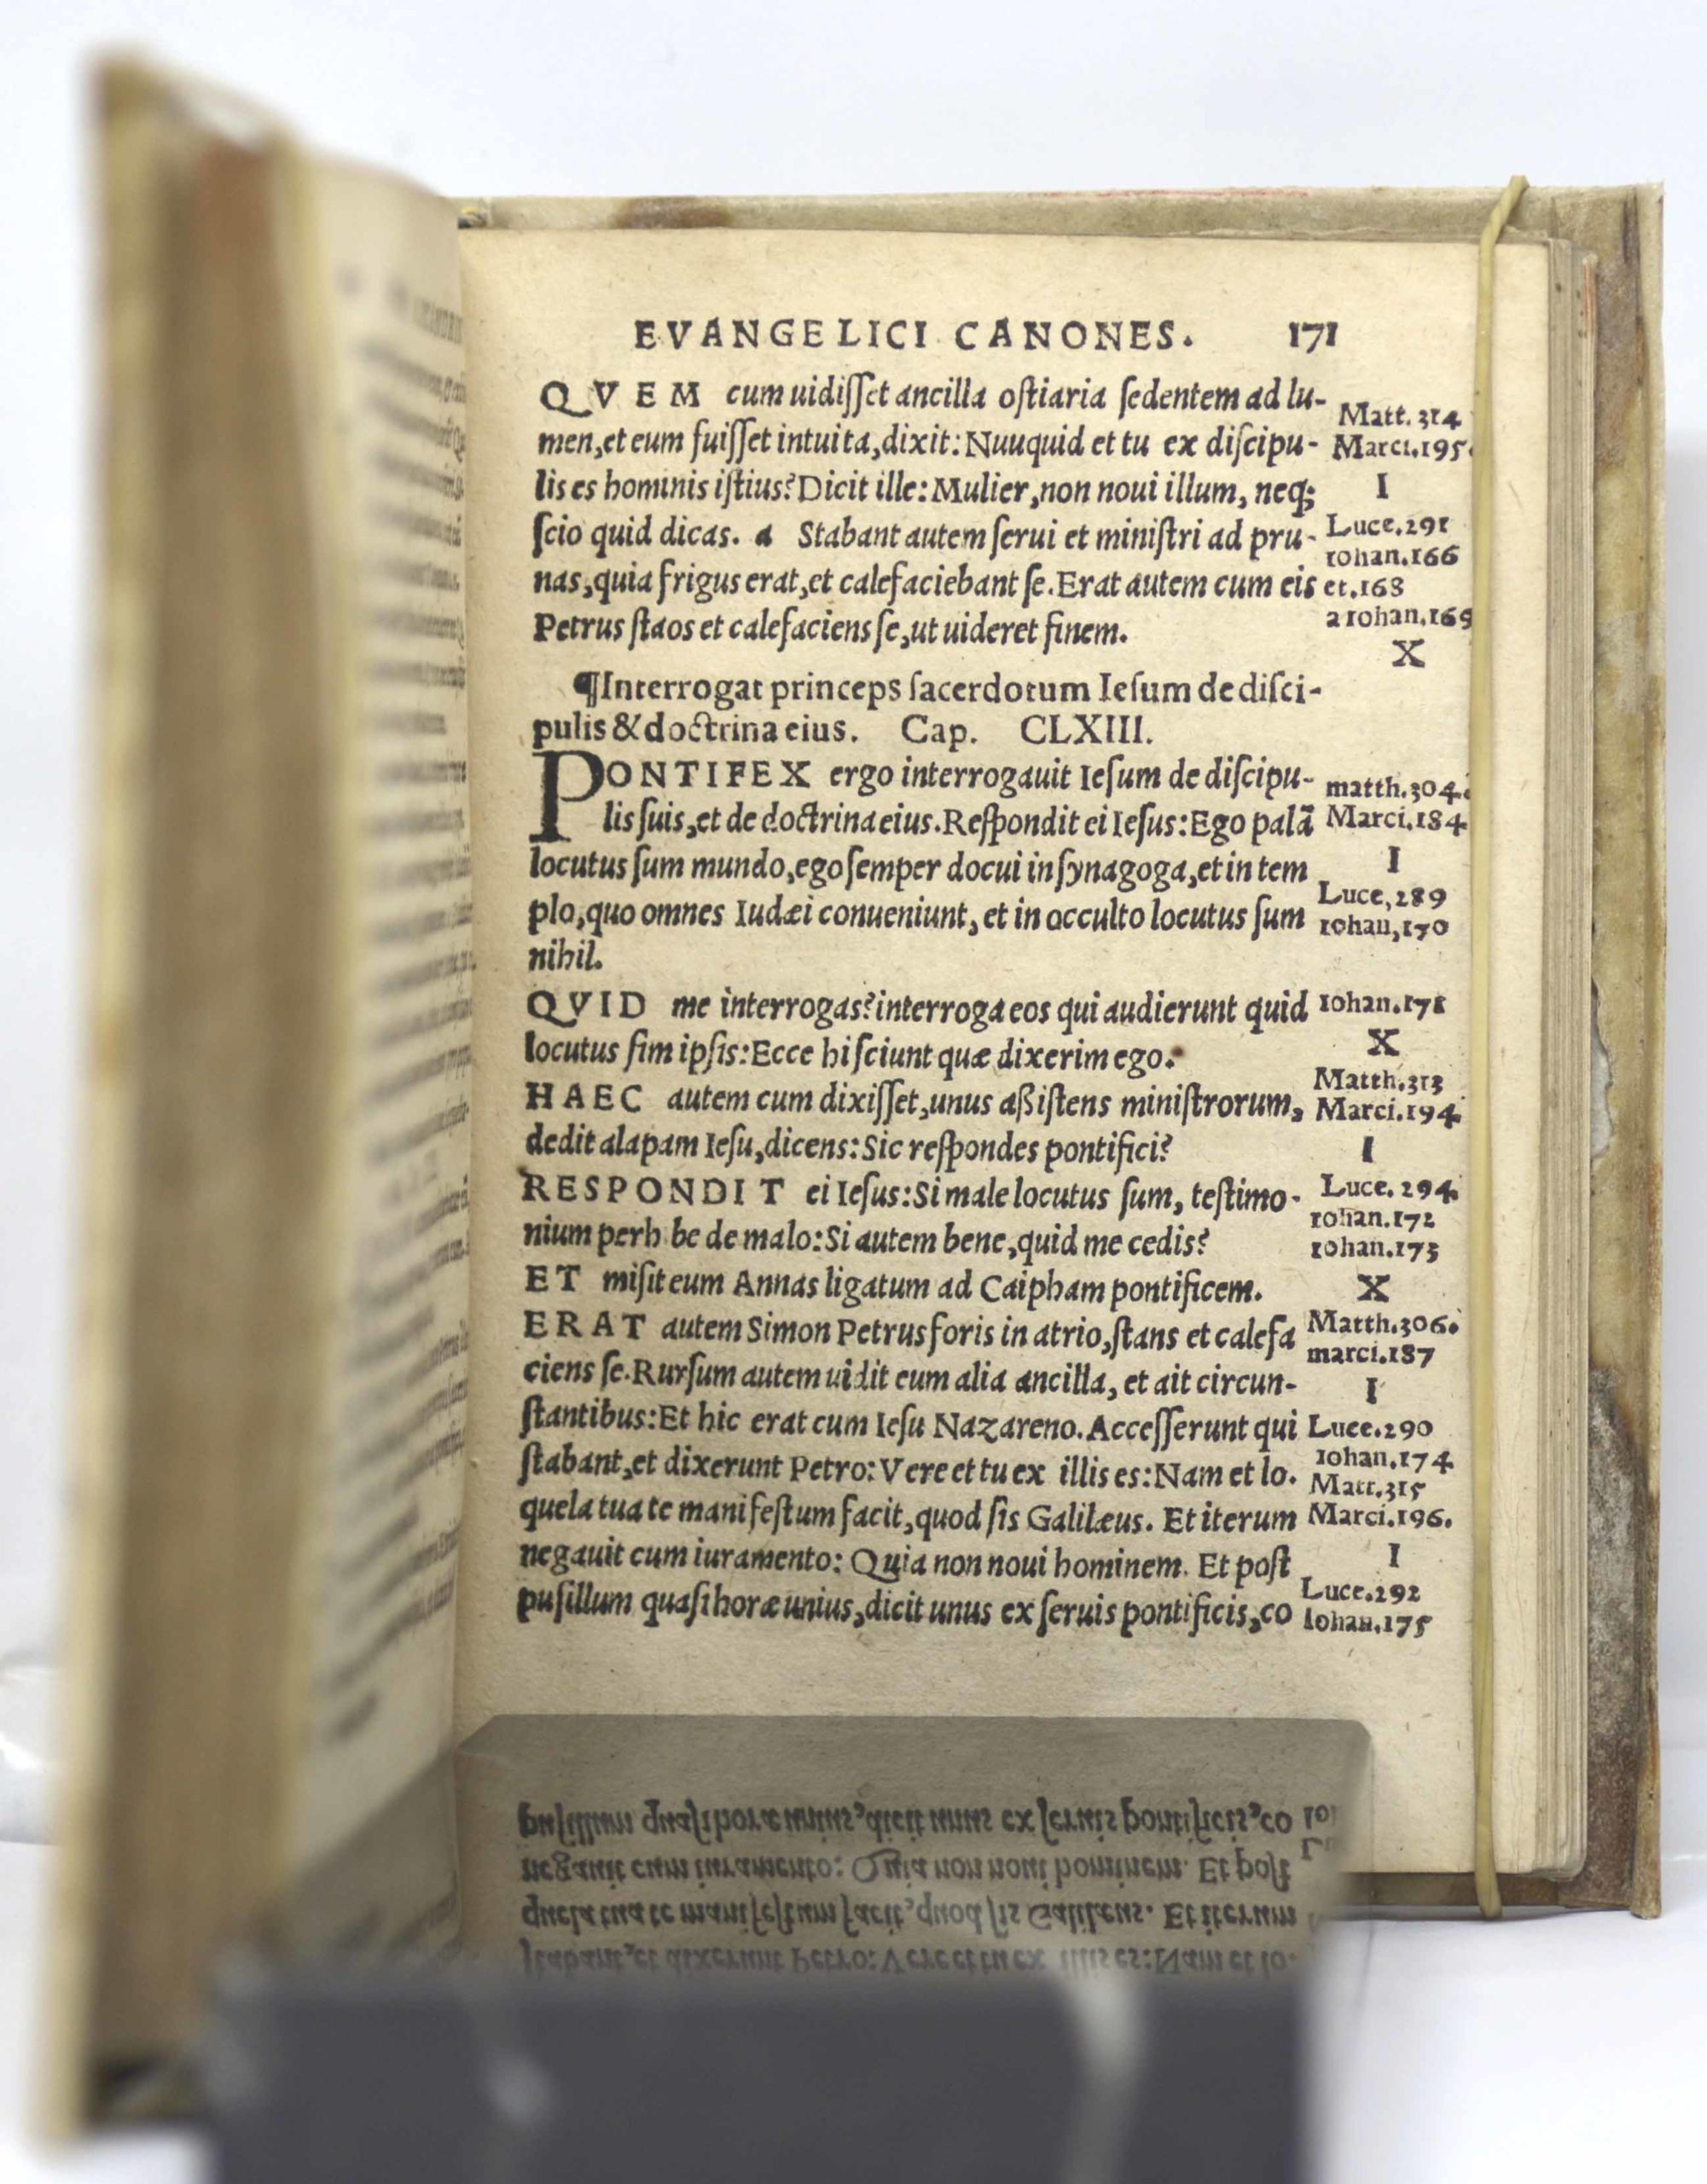 EVANGELICI CANONES. 171
QVEM cum uidiſſet ancilla oſtiaria ſedentem ad lu-
Matt. 314
men,et eum fuiſſet intuita,dixit: Nuuquid et tu ex diſcipu-
Marci.195.
lis es hominis iſtius? Dicit ille: Mulier,non noui illum, neq;
I
ſcio quid dicas. a Stabant autem ſerui et miniſtri ad pru-
Luce.291
Iohan.166
nas,quia frigus erat,et calefaciebant ſe. Erat autem cum eis
et.168
Petrus ſtaos et calefaciens ſe,ut uideret finem.
a Iohan.169
X
¶Interrogat princeps ſacerdotum Ieſum de diſci-
pulis & doctrina eius. Cap. CLXIII.
PONTIFEX ergo interrogauit Ieſum de diſcipu-
matth.304.
lis ſuis,et de doctrina eius. Reſpondit ei Ieſus: Ego palã
Marci.184
locutus ſum mundo,ego ſemper docui in ſynagoga,et in tem
I
Luce,289
plo,quo omnes Iudæi conueniunt, et in occulto locutus ſum
Iohan,170
nihil.
QVID me interrogas? interroga eos qui audierunt quid
Iohan.171
locutus ſim ipſis: Ecce hi ſciunt quæ dixerim ego.
X
Matth.313
HAEC autem cum dixiſſet,unus aßiſtens miniſtrorum,
Marci.194
dedit alapam Ieſu,dicens: Sic reſpondes pontifici?
I
RESPONDIT ei Ieſus: Si male locutus ſum, teſtimo-
Luce. 294
Iohan.172
nium perh be de malo: Si autem bene,quid me cedis?
Iohan.173
ET miſit eum Annas ligatum ad Caipham pontificem.
X
ERAT autem Simon Petrus foris in atrio,ſtans et calefa
Matth.306.
marci.187
ciens ſe. Rurſum autem uidit eum alia ancilla, et ait circun-
I
ſtantibus: Et hic erat cum Ieſu Nazareno. Acceſſerunt qui
Luce.290
Iohan.174
ſtabant,et dixerunt Petro: Vere et tu ex illis es: Nam et lo.
Matt.315
quela tua te manifeſtum facit,quod ſis Galilæus. Et iterum
Marci.196.
negauit cum iuramento: Quia non noui hominem. Et poſt
I
Luce.292
puſillum quaſi horæ unius,dicit unus ex ſeruis pontificis,co
Iohan.175